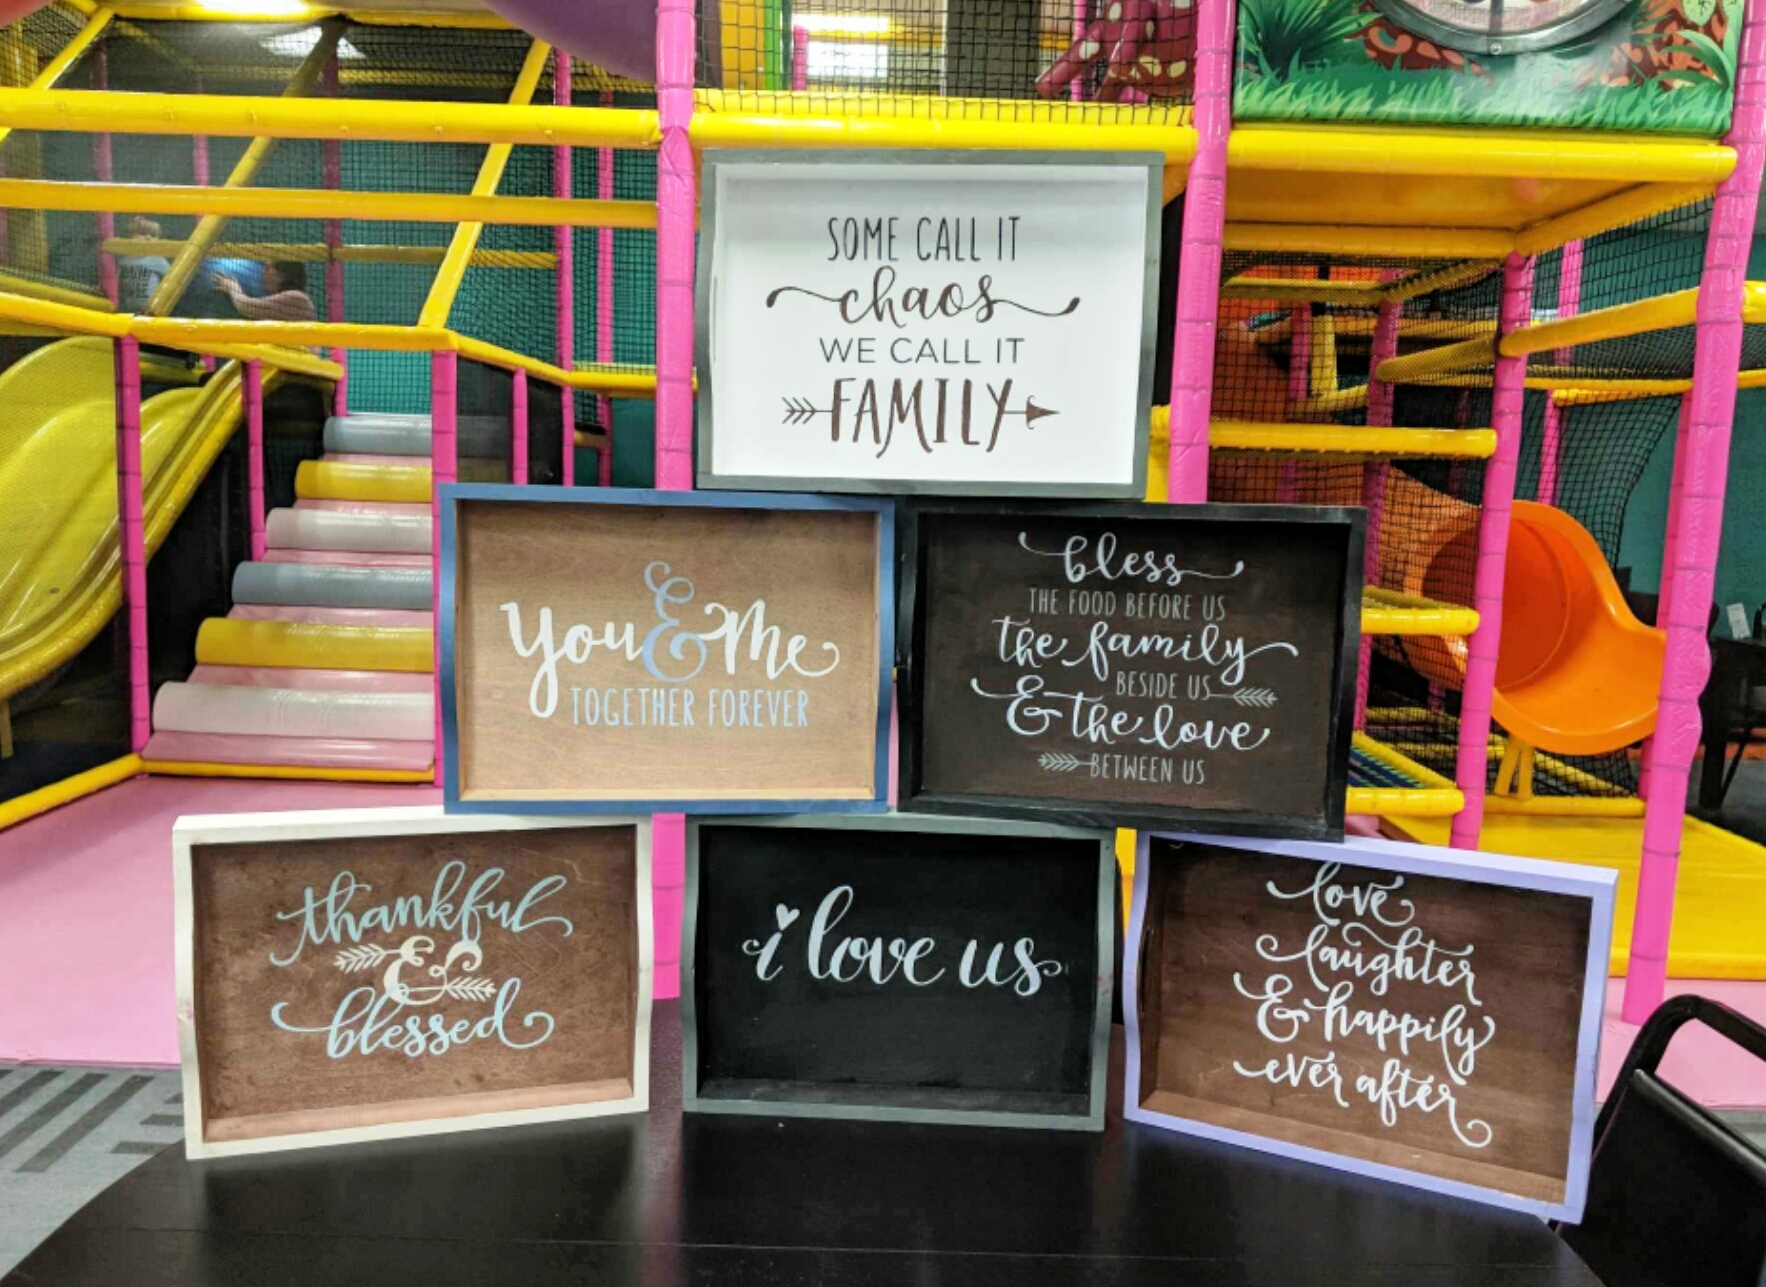 SOME CALL IT
chaos
WE CALL IT
FAMILY
You & Me
TOGETHER FOREVER
bless
THE FOOD BEFORE US
the family
BESIDE US
& the love
BETWEEN US
thankful
&
blessed
i love us
love
laughter
& happily
ever after